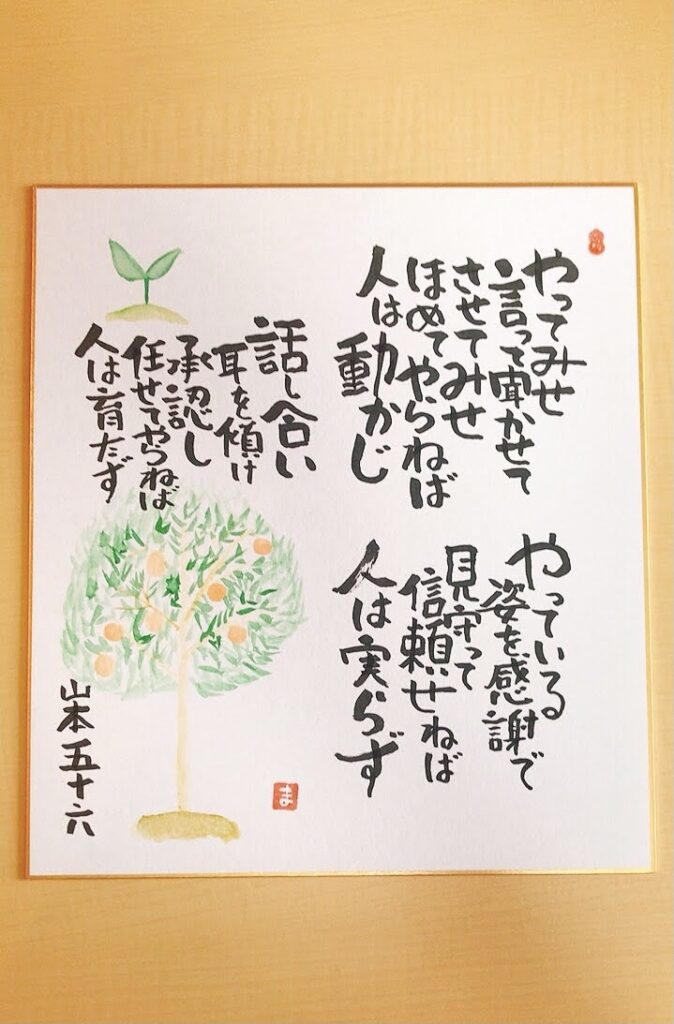 やってみせ
言って聞かせて
させてみせ
ほめてやらねば
人は動かじ
話し合い
耳を傾け
承認し
任せてやらねば
人は育たず
やっている
姿を感謝で
見守って
信頼せねば
人は実らず
山本五十六
ま